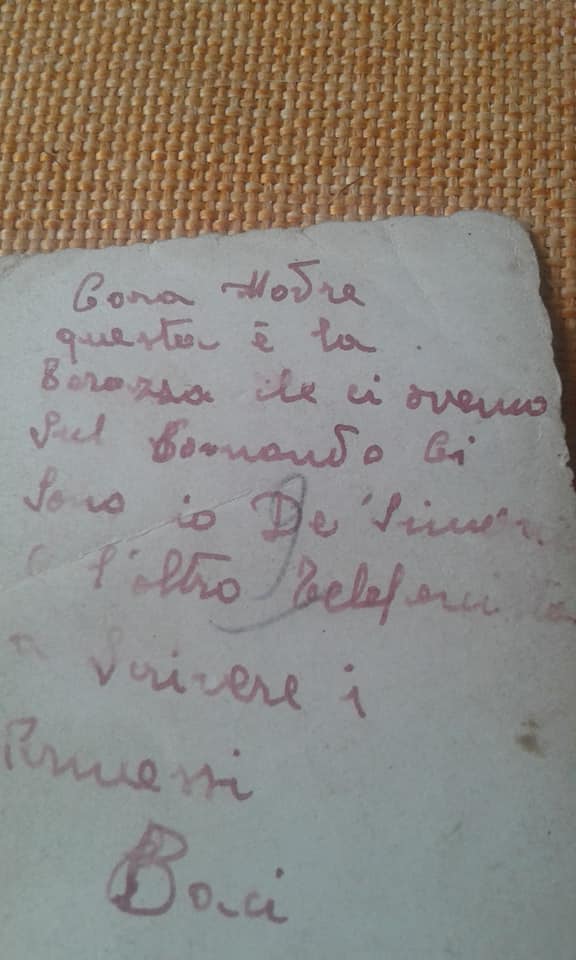 Cara Madre
questa è la
Terazza che ci avemo
Sul Comando Ci
Sono io De Simon
e l'altro Telefonista
a Scrivere i
Permessi
Baci